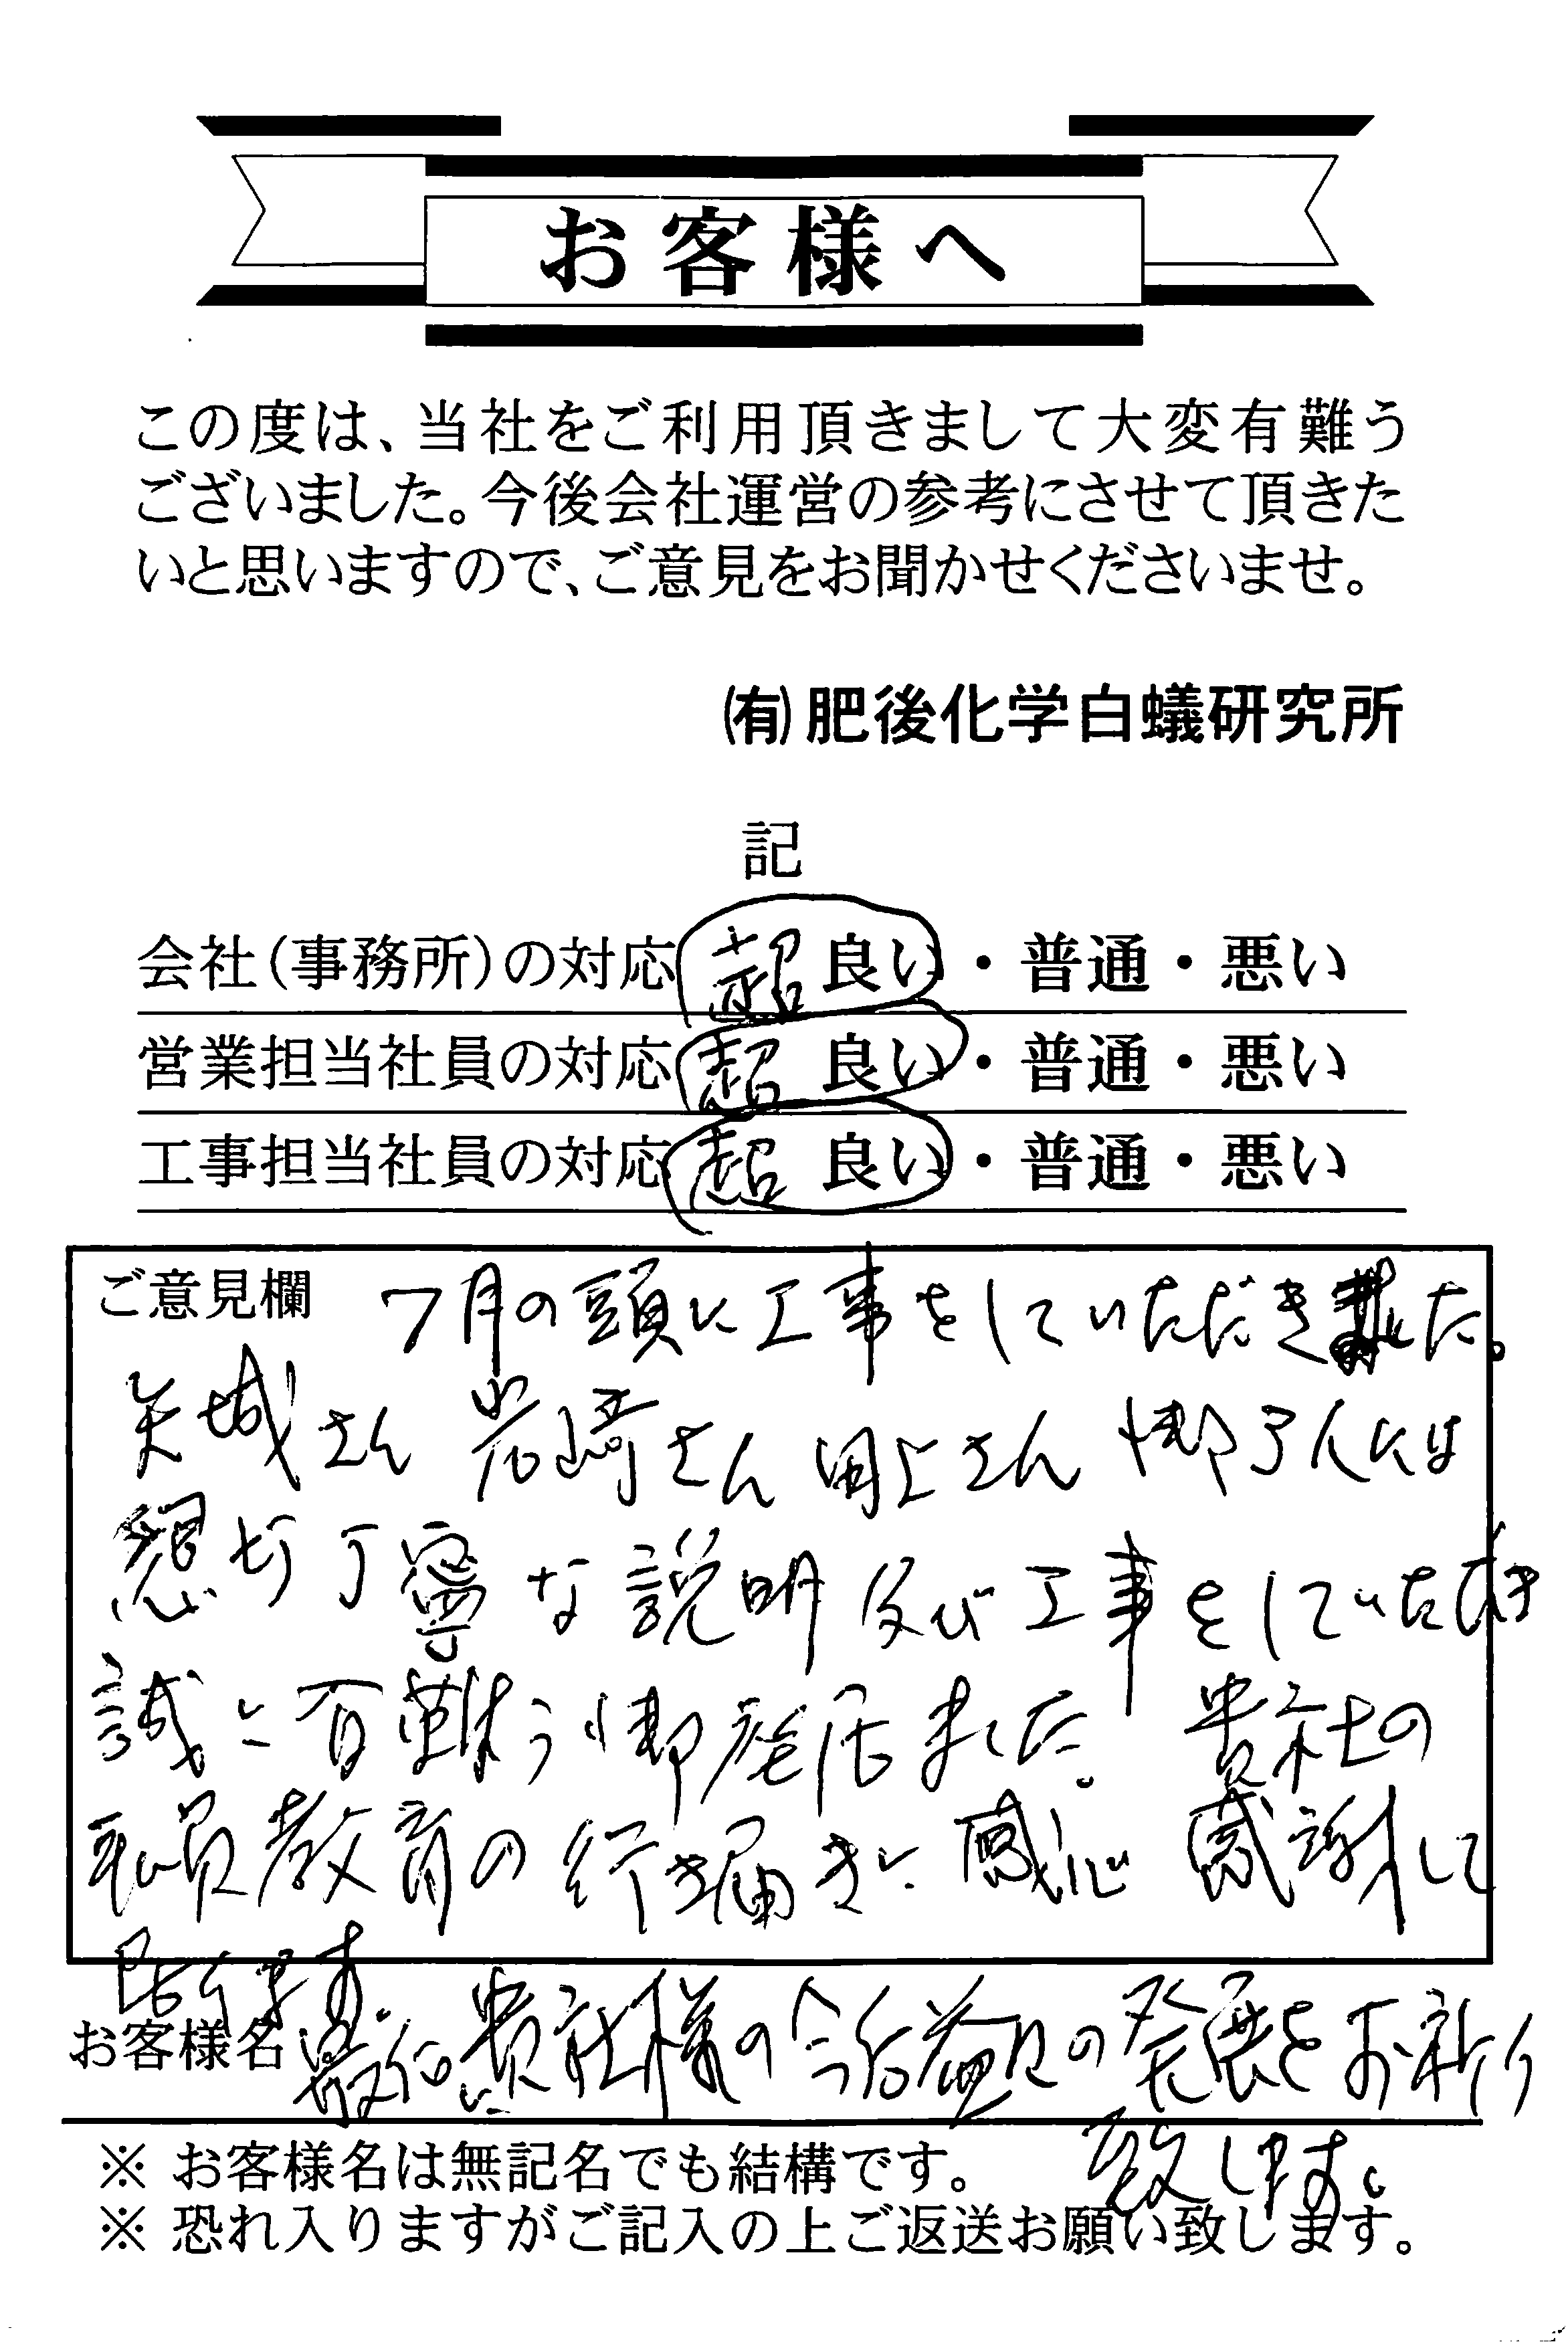 お客様へ
この度は、当社をご利用頂きまして大変有難う
ございました。今後会社運営の参考にさせて頂きた
いと思いますので、ご意見をお聞かせくださいませ。
(有)肥後化学白蟻研究所
記
会社(事務所)の対応 超 良い・普通・悪い
営業担当社員の対応 超 良い・普通・悪い
工事担当社員の対応 超 良い・普通・悪い
ご意見欄 7月の頭に工事をしていただきました。
矢城さん 岩崎さん 田上さん 御三人には
懇切丁寧な説明及び工事をしていただき
誠に有難う御座居ました。貴社の
社員教育の行き届きに感心 感謝して
居ります。
お客様名 最後に貴社様の今後益々の発展をお祈り
致します。
※ お客様名は無記名でも結構です。
※ 恐れ入りますがご記入の上ご返送お願い致します。